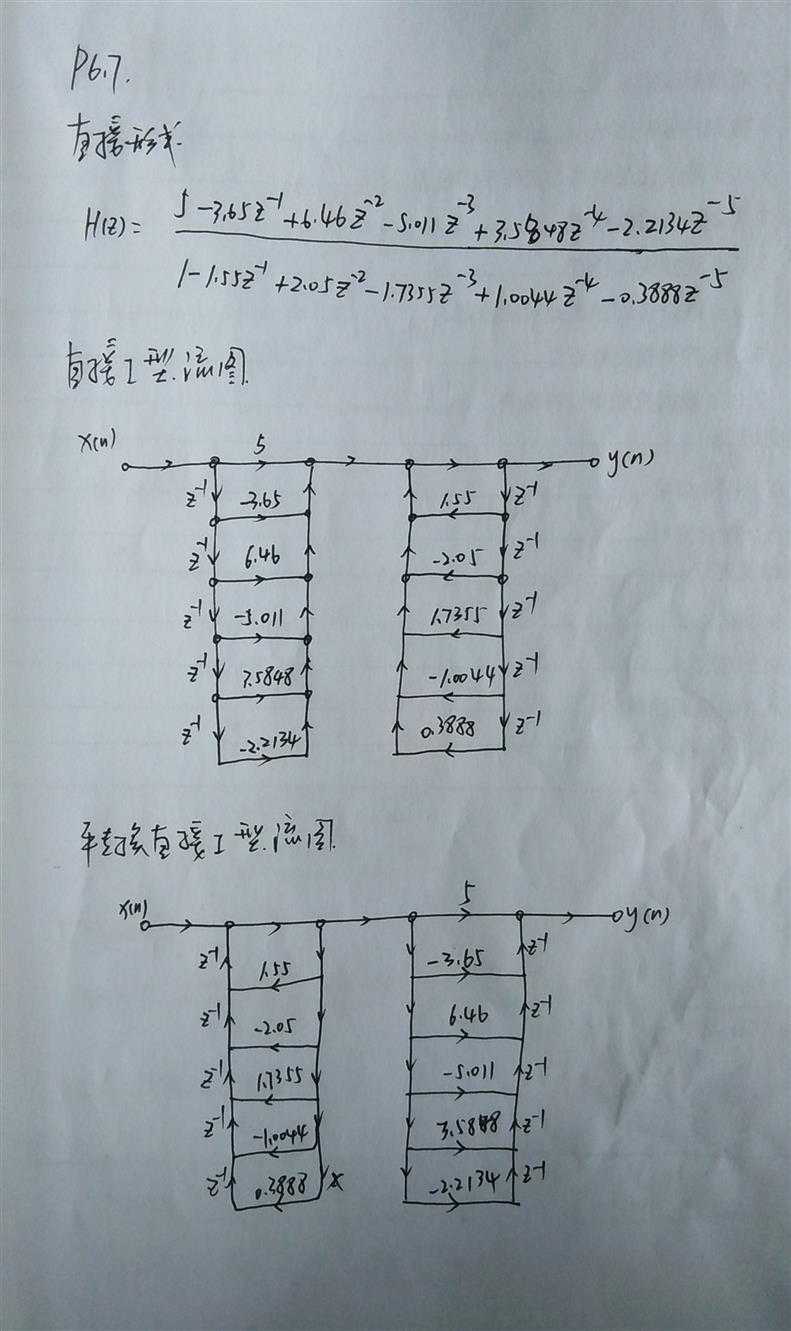 P6.7.
直接形式.
H(z)= 5 -3.65z^-1 +6.46z^-2 -5.011z^-3 +3.5848z^-4 -2.2134z^-5
1-1.55z^-1 +2.05z^-2 -1.7355z^-3 +1.0044z^-4 -0.3888z^-5
直接I型流图.
x(n) 5 y(n)
z^-1 -3.65 1.55 z^-1
z^-1 6.46 -2.05 z^-1
z^-1 -5.011 1.7355 z^-1
z^-1 3.5848 -1.0044 z^-1
z^-1 -2.2134 0.3888 z^-1
转换直接I型流图.
x(n) 5 y(n)
z^-1 1.55 -3.65 z^-1
z^-1 -2.05 6.46 z^-1
z^-1 1.7355 -5.011 z^-1
z^-1 -1.0044 3.5848 z^-1
z^-1 0.3888 -2.2134 z^-1